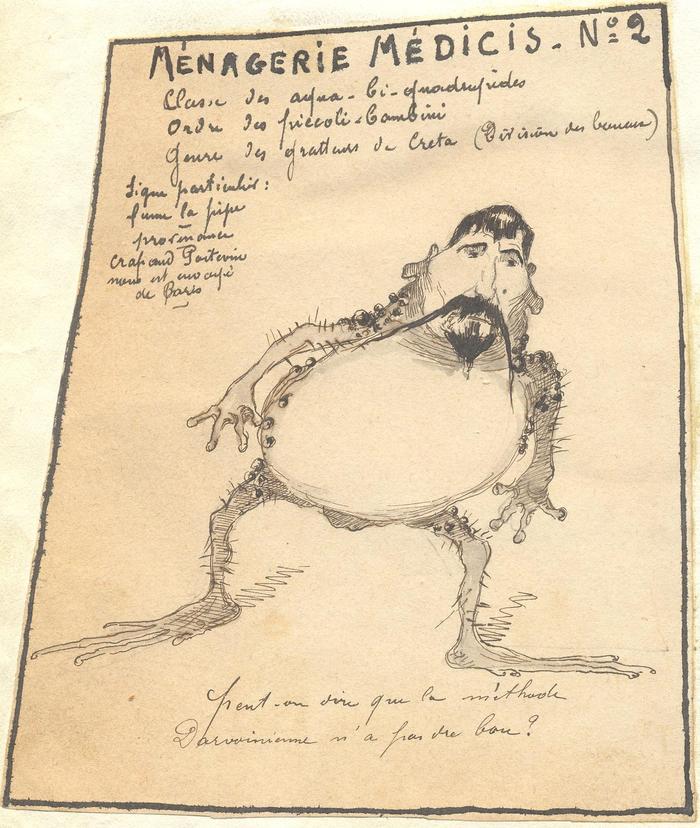 MÉNAGERIE MÉDICIS. Nº 2
Classe des aqua-bi-quadrupèdes
Ordre des piccoli-bambini
Genre des gratteurs de Creta (Division des
Signe particulier :
fume la pipe
provenance
Crapaud Poitevin
nous est envoyé
de Paris
Peut-on dire que la méthode
Darwinienne n'a pas du bon ?